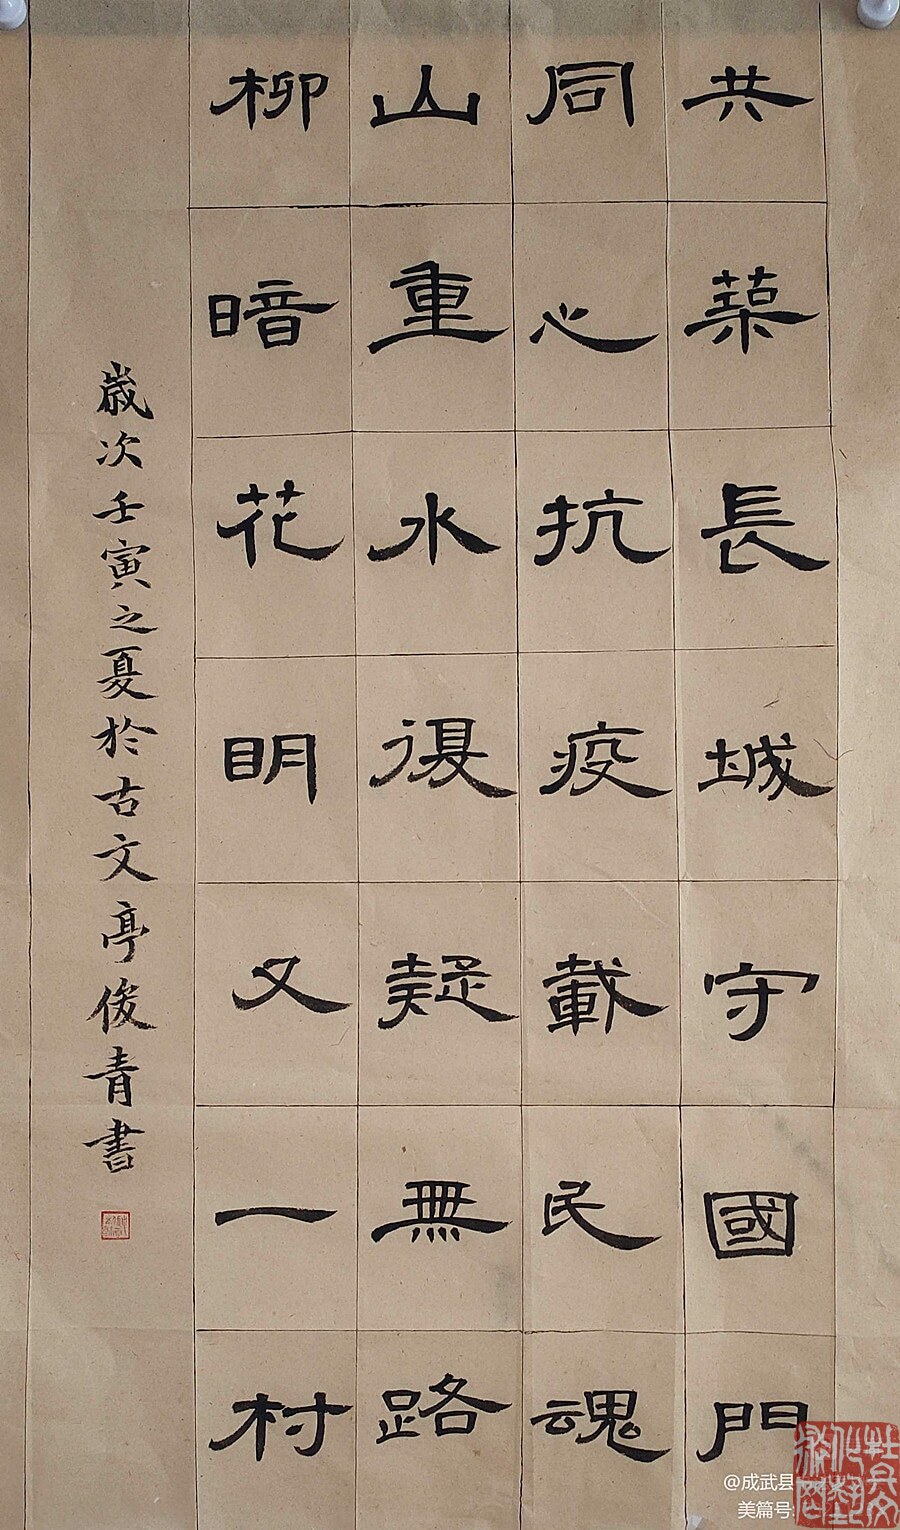 共築長城守國門
同心抗疫載民魂
山重水復疑無路
柳暗花明又一村
歲次壬寅之夏於古文亭俊青書
@成武县
美篇号: